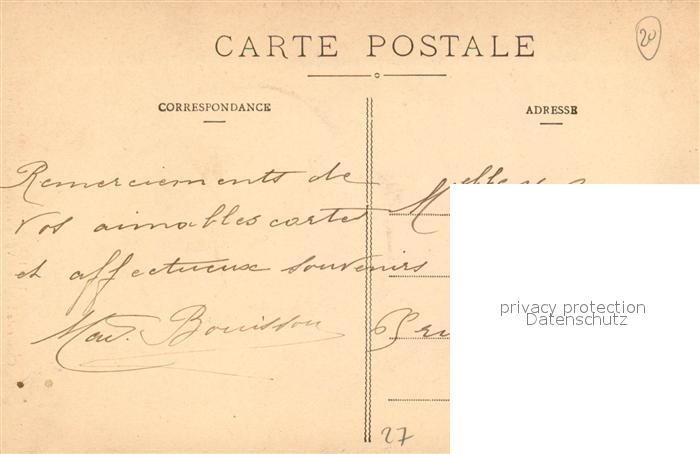 CARTE POSTALE
20
CORRESPONDANCE
ADRESSE
Remerciements de
vos aimables cartes
et affectueux souvenirs
Bouisson
27
privacy protection
Datenschutz